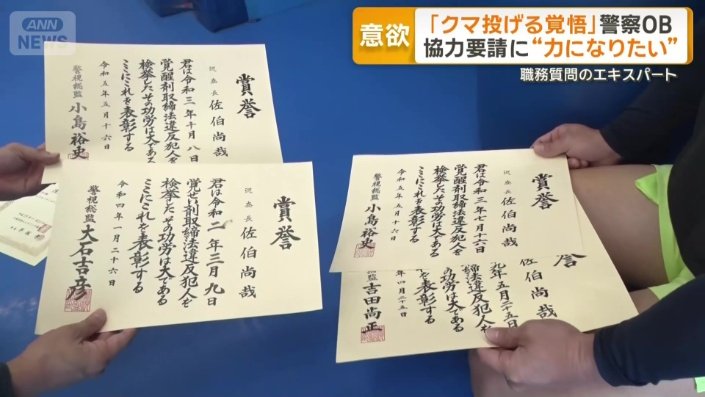 ANN
NEWS
意欲
「クマ投げる覚悟」警察OB
協力要請に“力になりたい”
職務質問のエキスパート
賞誉
巡査長 佐伯尚哉
君は令和三年十月八日
覚醒剤取締法違反犯人を
検挙したその功労は大である
ここにこれを表彰する
令和五年五月十六日
警視総監 小島裕史
賞誉
巡査長 佐伯尚哉
君は令和二年三月九日
覚せい剤取締法違反犯人を
検挙したその功労は大である
ここにこれを表彰する
令和四年一月二十六日
警視総監 大石吉彦
賞誉
巡査長 佐伯尚哉
君は令和三年七月十六日
覚醒剤取締法違反犯人を
検挙したその功労は大である
ここにこれを表彰する
令和五年五月十六日
警視総監 小島裕史
誉
佐伯尚哉
元年五月二十五日
取締法違反犯人を
の功労は大である
を表彰する
年四月二十五日
総監 吉田尚正